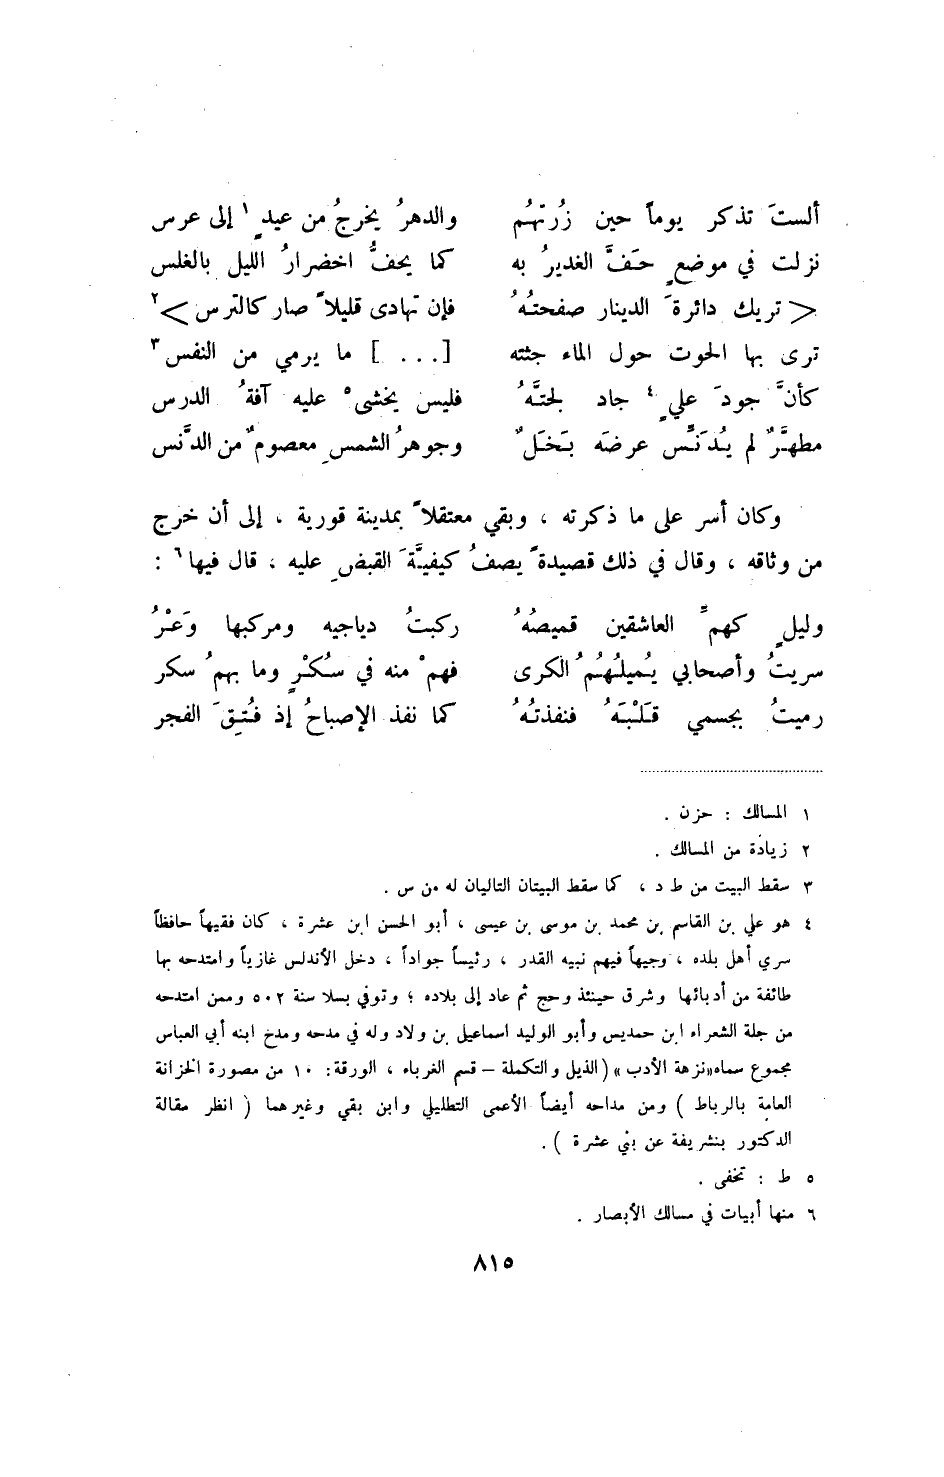 ألستَ تذكر يوماً حين زُرتهُم والدهرُ يخرجُ من عيدٍ ١ إلى عرس
نزلت في موضعٍ حَفَّ الغديرُ به كما يحفُّ اخضرارُ الليل بالغلس
< تريك دائرةَ الدينار صفحتُهُ فإن تهادى قليلاً صار كالترس > ٢
ترى بها الحوت حول الماء جثته [ . . . ] ما يرمي من النفس ٣
كأنَّ جودَ عليٍ ٤ جاد لجتَّهُ فليس يخشى ٥ عليه آفةُ الدرس
مطهَّرٌ لم يُدَنِّس عرضَه بَخَلٌ وجوهرُ الشمسِ معصومٌ من الدَّنس
وكان أسر على ما ذكرته ، وبقي معتقلاً بمدينة قورية ، إلى أن خرج
من وثاقه ، وقال في ذلك قصيدةً يصفُ كيفيَّةَ القبضِ عليه ، قال فيها ٦ :
وليلٍ كهمِّ العاشقين قميصُهُ ركبتُ دياجيه ومركبها وَعْرُ
سريتُ وأصحابي يُميلُهُمُ الكرى فهمْ منه في سُكْرٍ وما بهمُ سكر
رميتُ بجسمي قَلْبَهُ فنفذتُهُ كما نفذ الإصباحُ إذ فُتِقَ الفجر
١ المسالك : حزن .
٢ زيادة من المسالك .
٣ سقط البيت من ط د ، كما سقط البيتان التاليان له من س .
٤ هو علي بن القاسم بن محمد بن موسى بن عيسى ، أبو الحسن ابن عشرة ، كان فقيهاً حافظاً
سري أهل بلده ، وجيهاً فيهم نبيه القدر ، رئيساً جواداً ، دخل الأندلس غازياً وامتدحه بها
طائفة من أدبائها وشرق حينئذ وحج ثم عاد إلى بلاده ؛ وتوفي بسلا سنة ٥٠٢ وممن امتدحه
من جلة الشعراء ابن حمديس وأبو الوليد اسماعيل بن ولاد وله في مدحه ومدح ابنه أبي العباس
مجموع سماه «نزهة الأدب» (الذيل والتكملة – قسم الغرباء ، الورقة : ١٠ من مصورة الخزانة
العامة بالرباط ) ومن مداحه أيضاً الأعمى التطليلي وابن بقي وغيرهما ( انظر مقالة
الدكتور بنشريفة عن بني عشرة ) .
٥ ط : تخفى .
٦ منها أبيات في مسالك الأبصار .
٨١٥